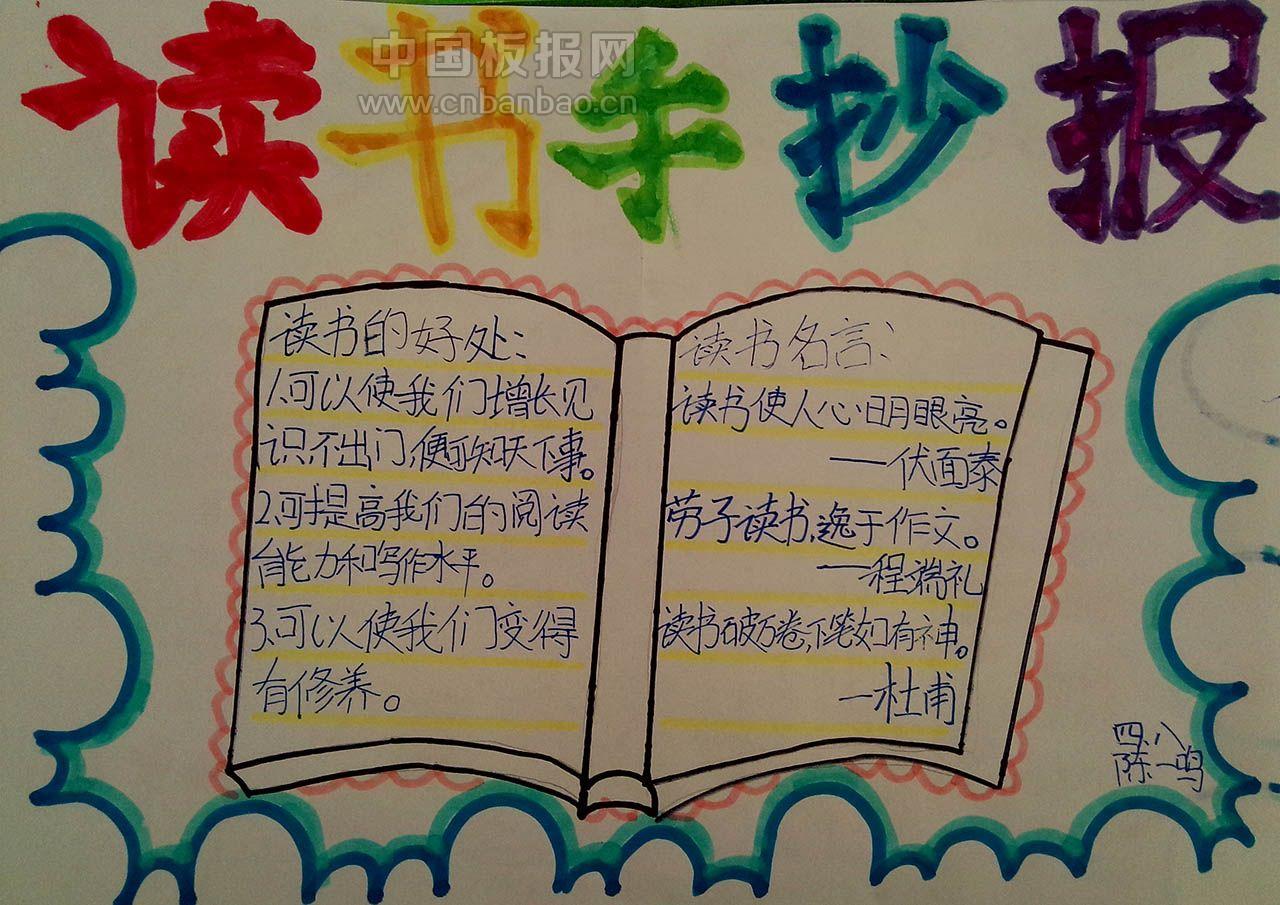 读书手抄报
中国板报网
www.cnbanbao.cn
读书的好处:
1.可以使我们增长见
识,不出门,便可知天下事。
2.可提高我们的阅读
能力和写作水平。
3.可以使我们变得
有修养。
读书名言:
读书使人心明眼亮。
——伏面泰
劳于读书,逸于作文。
——程端礼
读书破万卷,下笔如有神。
—杜甫
四、八
陈一鸣